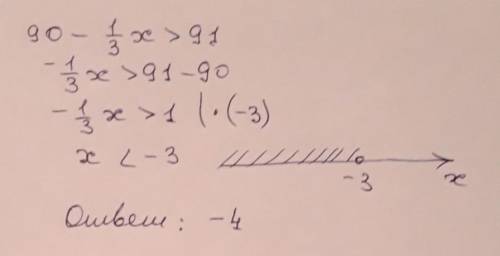 90 - 1/3 x > 91
- 1/3 x > 91 - 90
- 1/3 x > 1 | · (-3)
x < -3
-3
x
Ответ: -4